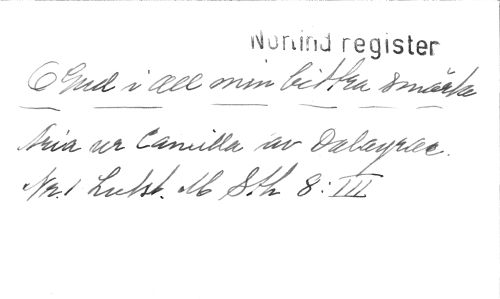 Norlind register
O Gud i all min bittra smärta
Aria ur Camilla av Dalayrac.
Nr. 1 Lukst. M Sth 8: III